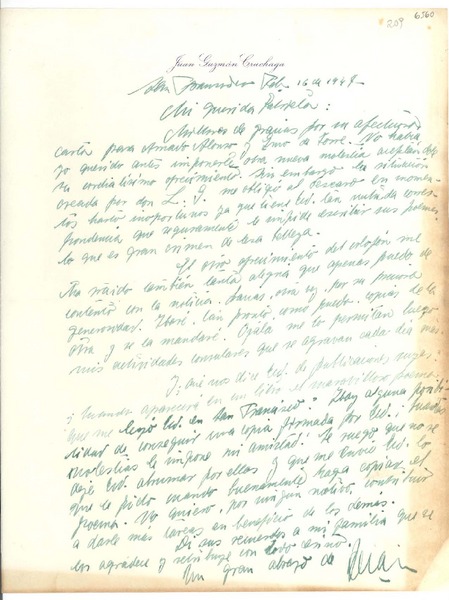 209
6360
Juan Guzmán Cruchaga
San Francisco Feb. 16 de 1947
Mi querida Gabriela:
Millones de gracias por su afectuosa
carta para Amado Alonso y de Torre. No había
yo querido antes imponerle otra nueva molestia
su cordialísimo ofrecimiento. Sin embargo la situación
creada por don L. J. me obligó al descaro en momen-
tos harto inoportunos ya que tiene Ud. tan nutrida corres-
pondencia que seguramente le impide escribir sus poemas
lo que es gran crimen de lesa belleza.
El otro ofrecimiento del colofón me
ha traído también tanta alegría que apenas puedo de
contento con la noticia. Gracias, otra vez, por su preciosa
generosidad. Haré, tan pronto como pueda, copias de la
obra y se la mandaré. Ojalá me lo permitan luego
mis actividades consulares que se agravan cada día más.
Y ¿qué nos dice Ud. de publicaciones suyas?
¿Cuándo aparecerá en un libro el maravilloso poema
que me leyó Ud. en San Francisco? ¿Hay alguna posibi-
lidad de conseguir una copia firmada por Ud.? ¡Cuántas
molestias le impone mi amistad! Le ruego que no se
deje Ud. abrumar por ellas y que me envíe Ud. lo
que le pido cuando buenamente haga copiar el
poema. No quiero, por ningún motivo, contribuir
a darle más tareas en beneficio de los demás.
Di sus recuerdos a mi familia que se
los agradece y retribuye con todo cariño.
Un gran abrazo de Juan